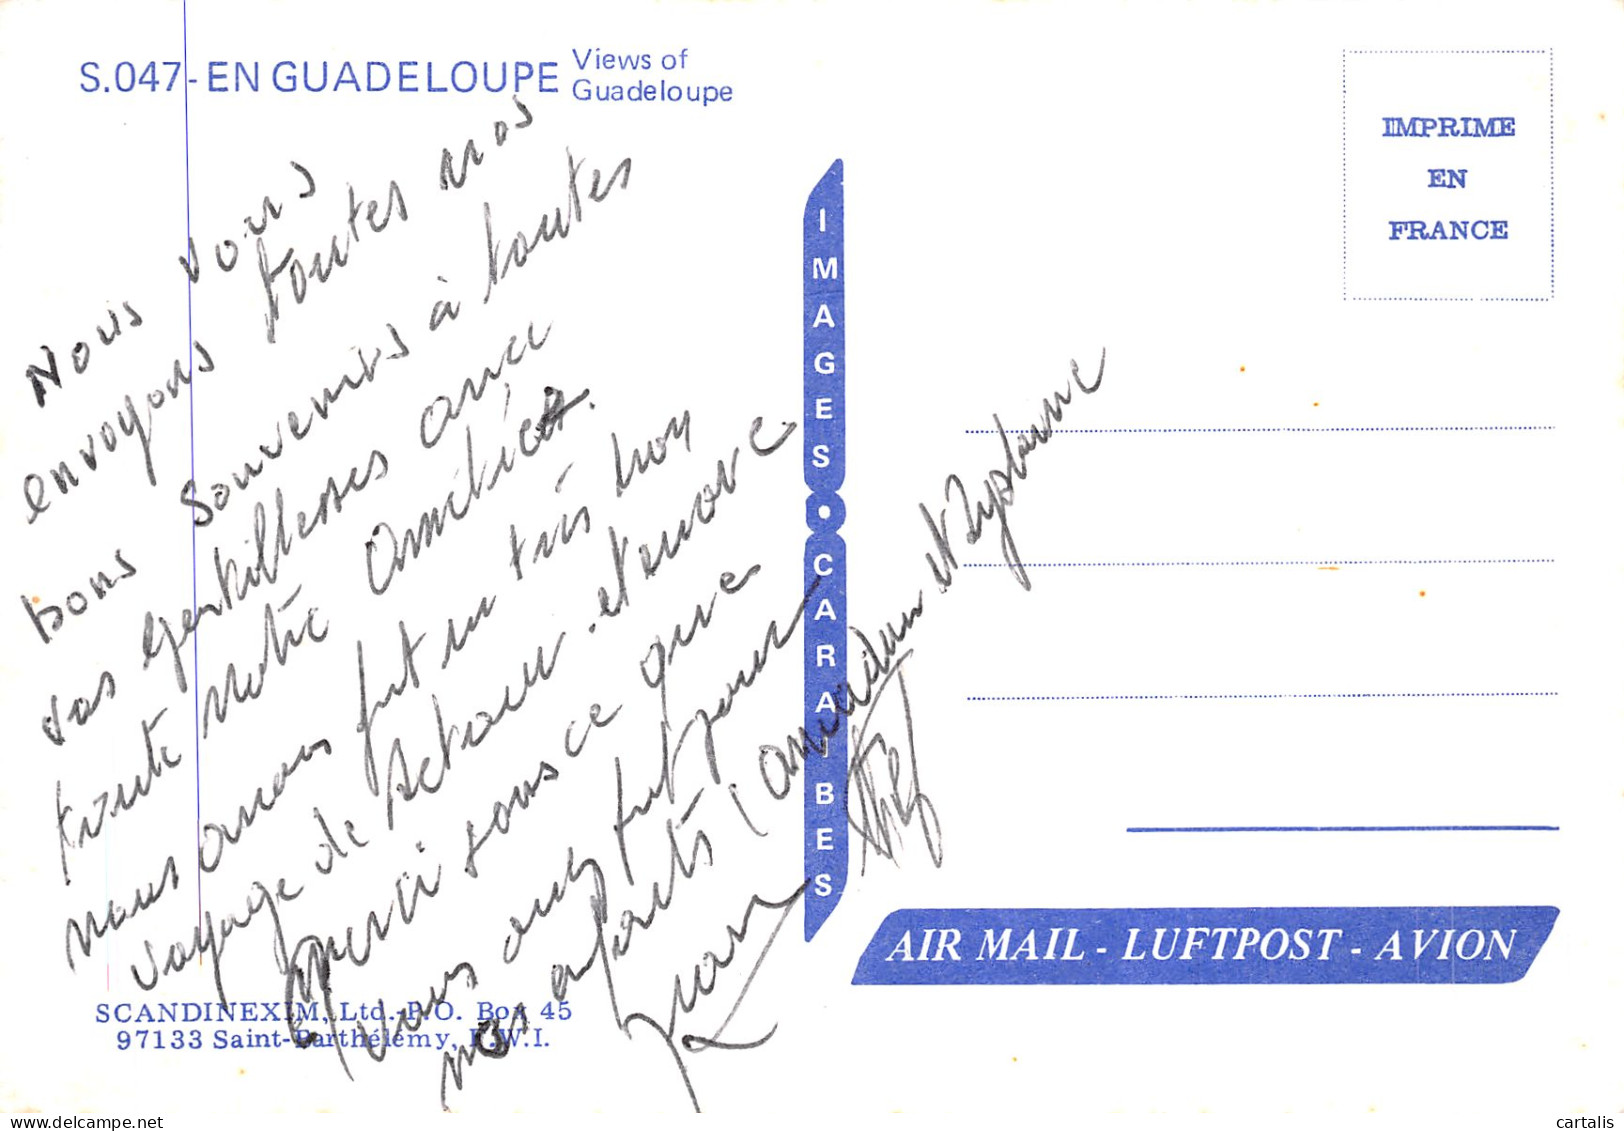 S.047-EN GUADELOUPE
Views of
Guadeloupe
IMPRIME
EN
FRANCE
IMAGES • CARAIBES
Nous vous
envoyons toutes nos
bons souvenirs à toutes
vos gentillesses avec
toute notre amitiés.
nous avons fait un très bon
voyage de retour et encore
merci tous ce que
vous avez fait pour
nos enfants
AIR MAIL - LUFTPOST - AVION
SCANDINEXIM, Ltd.-P.O. Box 45
97133 Saint-Barthélemy, F.W.I.
cartalis
delcampe.net